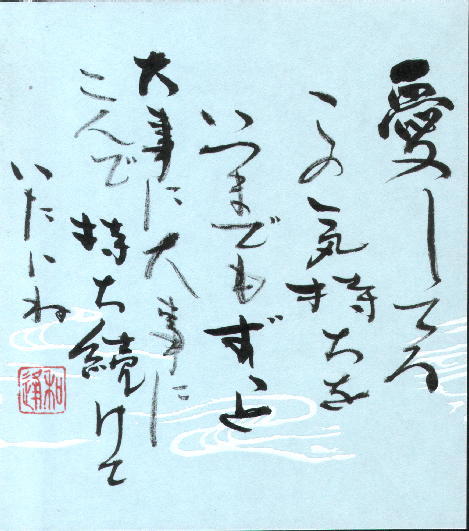 愛してる
この気持ちを
いつまでもずっと
大事に大事に
二人で持ち続けて
いたいね
和通